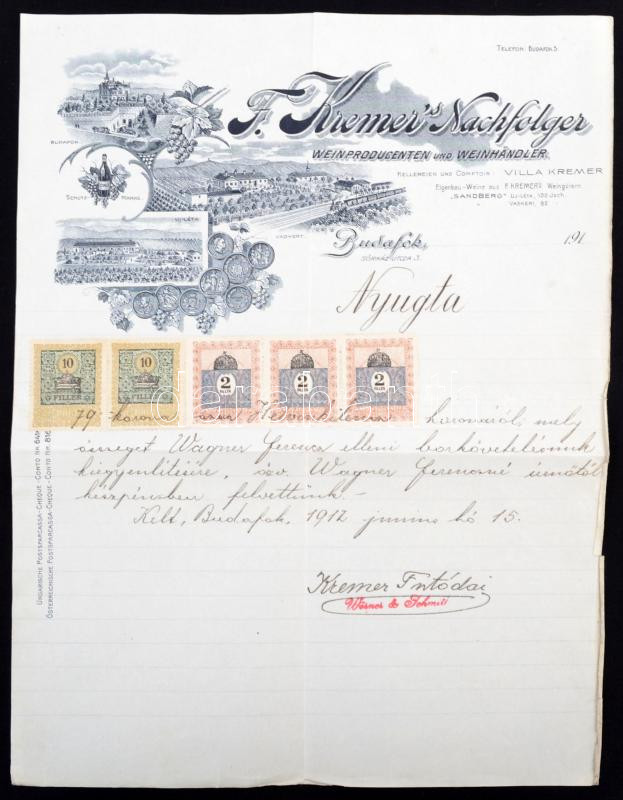 TELEFON: BUDAFOK 5.
F. Kremer's Nachfolger
WEINPRODUCENTEN UND WEINHÄNDLER
KELLEREIEN UND COMPTOIR: VILLA KREMER
Eigenbau-Weine aus F. KREMER's Weingütern
"SANDBERG" UJ-LÉTA, 102 Joch
" VASKERI, 82 "
BUDAFOK
SCHUTZ MARKE
UJ-LÉTA
VADKERT
Budafok, 191
SÖRHÁZ-UTCZA 3.
Nyugta
10 10 2 2 2
FILLER FILLER FILLER FILLER FILLER
79 korona azaz Hetvenkilencz koronáról, mely
összeget Wagner Ferencz elleni borkövetelésünk
kiegyenlítésére, özv. Wagner Ferenczné úrnőtől
készpénzben felvettünk.
Kelt, Budafok, 1912 junius hó 15.
Kremer F utódai
Werner & Schmitt
UNGARISCHE POSTSPARCASSA-CHEQUE-CONTO NR. 649
ÖSTERREICHISCHE POSTSPARCASSA-CHEQUE-CONTO NR. 816